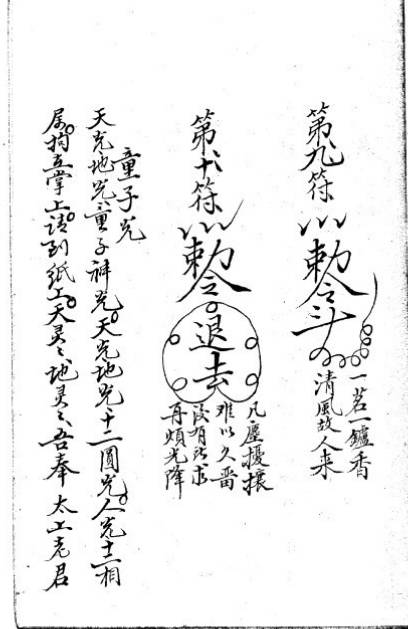 第九符
勅令
一茗一鑪香
清風故人来
第十符
勅令
退去
凡塵擾攘
难以久畱
没有所求
再煩光降
童子光
天光地光童子神光天光地光十二圓光人光十二相
属拘在掌上請到紙上天灵〻地灵〻吾奉 太上老君